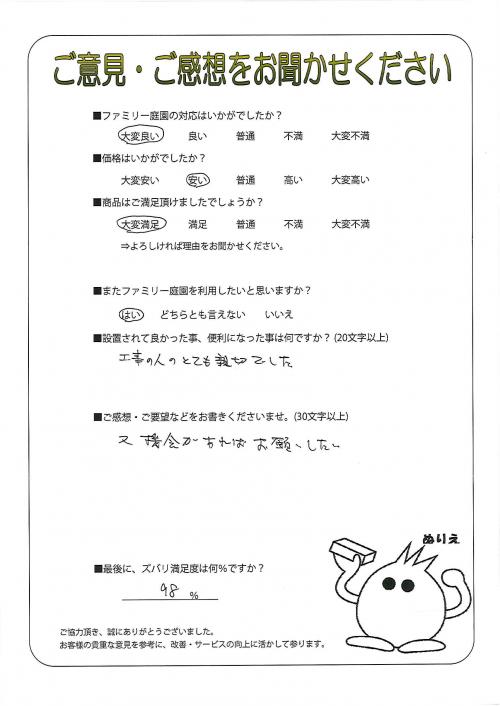 ご意見・ご感想をお聞かせください
■ファミリー庭園の対応はいかがでしたか？
大変良い 良い 普通 不満 大変不満
■価格はいかがでしたか？
大変安い 安い 普通 高い 大変高い
■商品はご満足頂けましたでしょうか？
大変満足 満足 普通 不満 大変不満
⇒よろしければ理由をお聞かせください。
■またファミリー庭園を利用したいと思いますか？
はい どちらとも言えない いいえ
■設置されて良かった事、便利になった事は何ですか？(20文字以上)
工事の人のとても親切でした
■ご感想・ご要望などをお書きくださいませ。(30文字以上)
又機会があればお願いしたい
ぬりえ
■最後に、ズバリ満足度は何％ですか？
98 ％
ご協力頂き、誠にありがとうございました。
お客様の貴重な意見を参考に、改善・サービスの向上に活かして参ります。